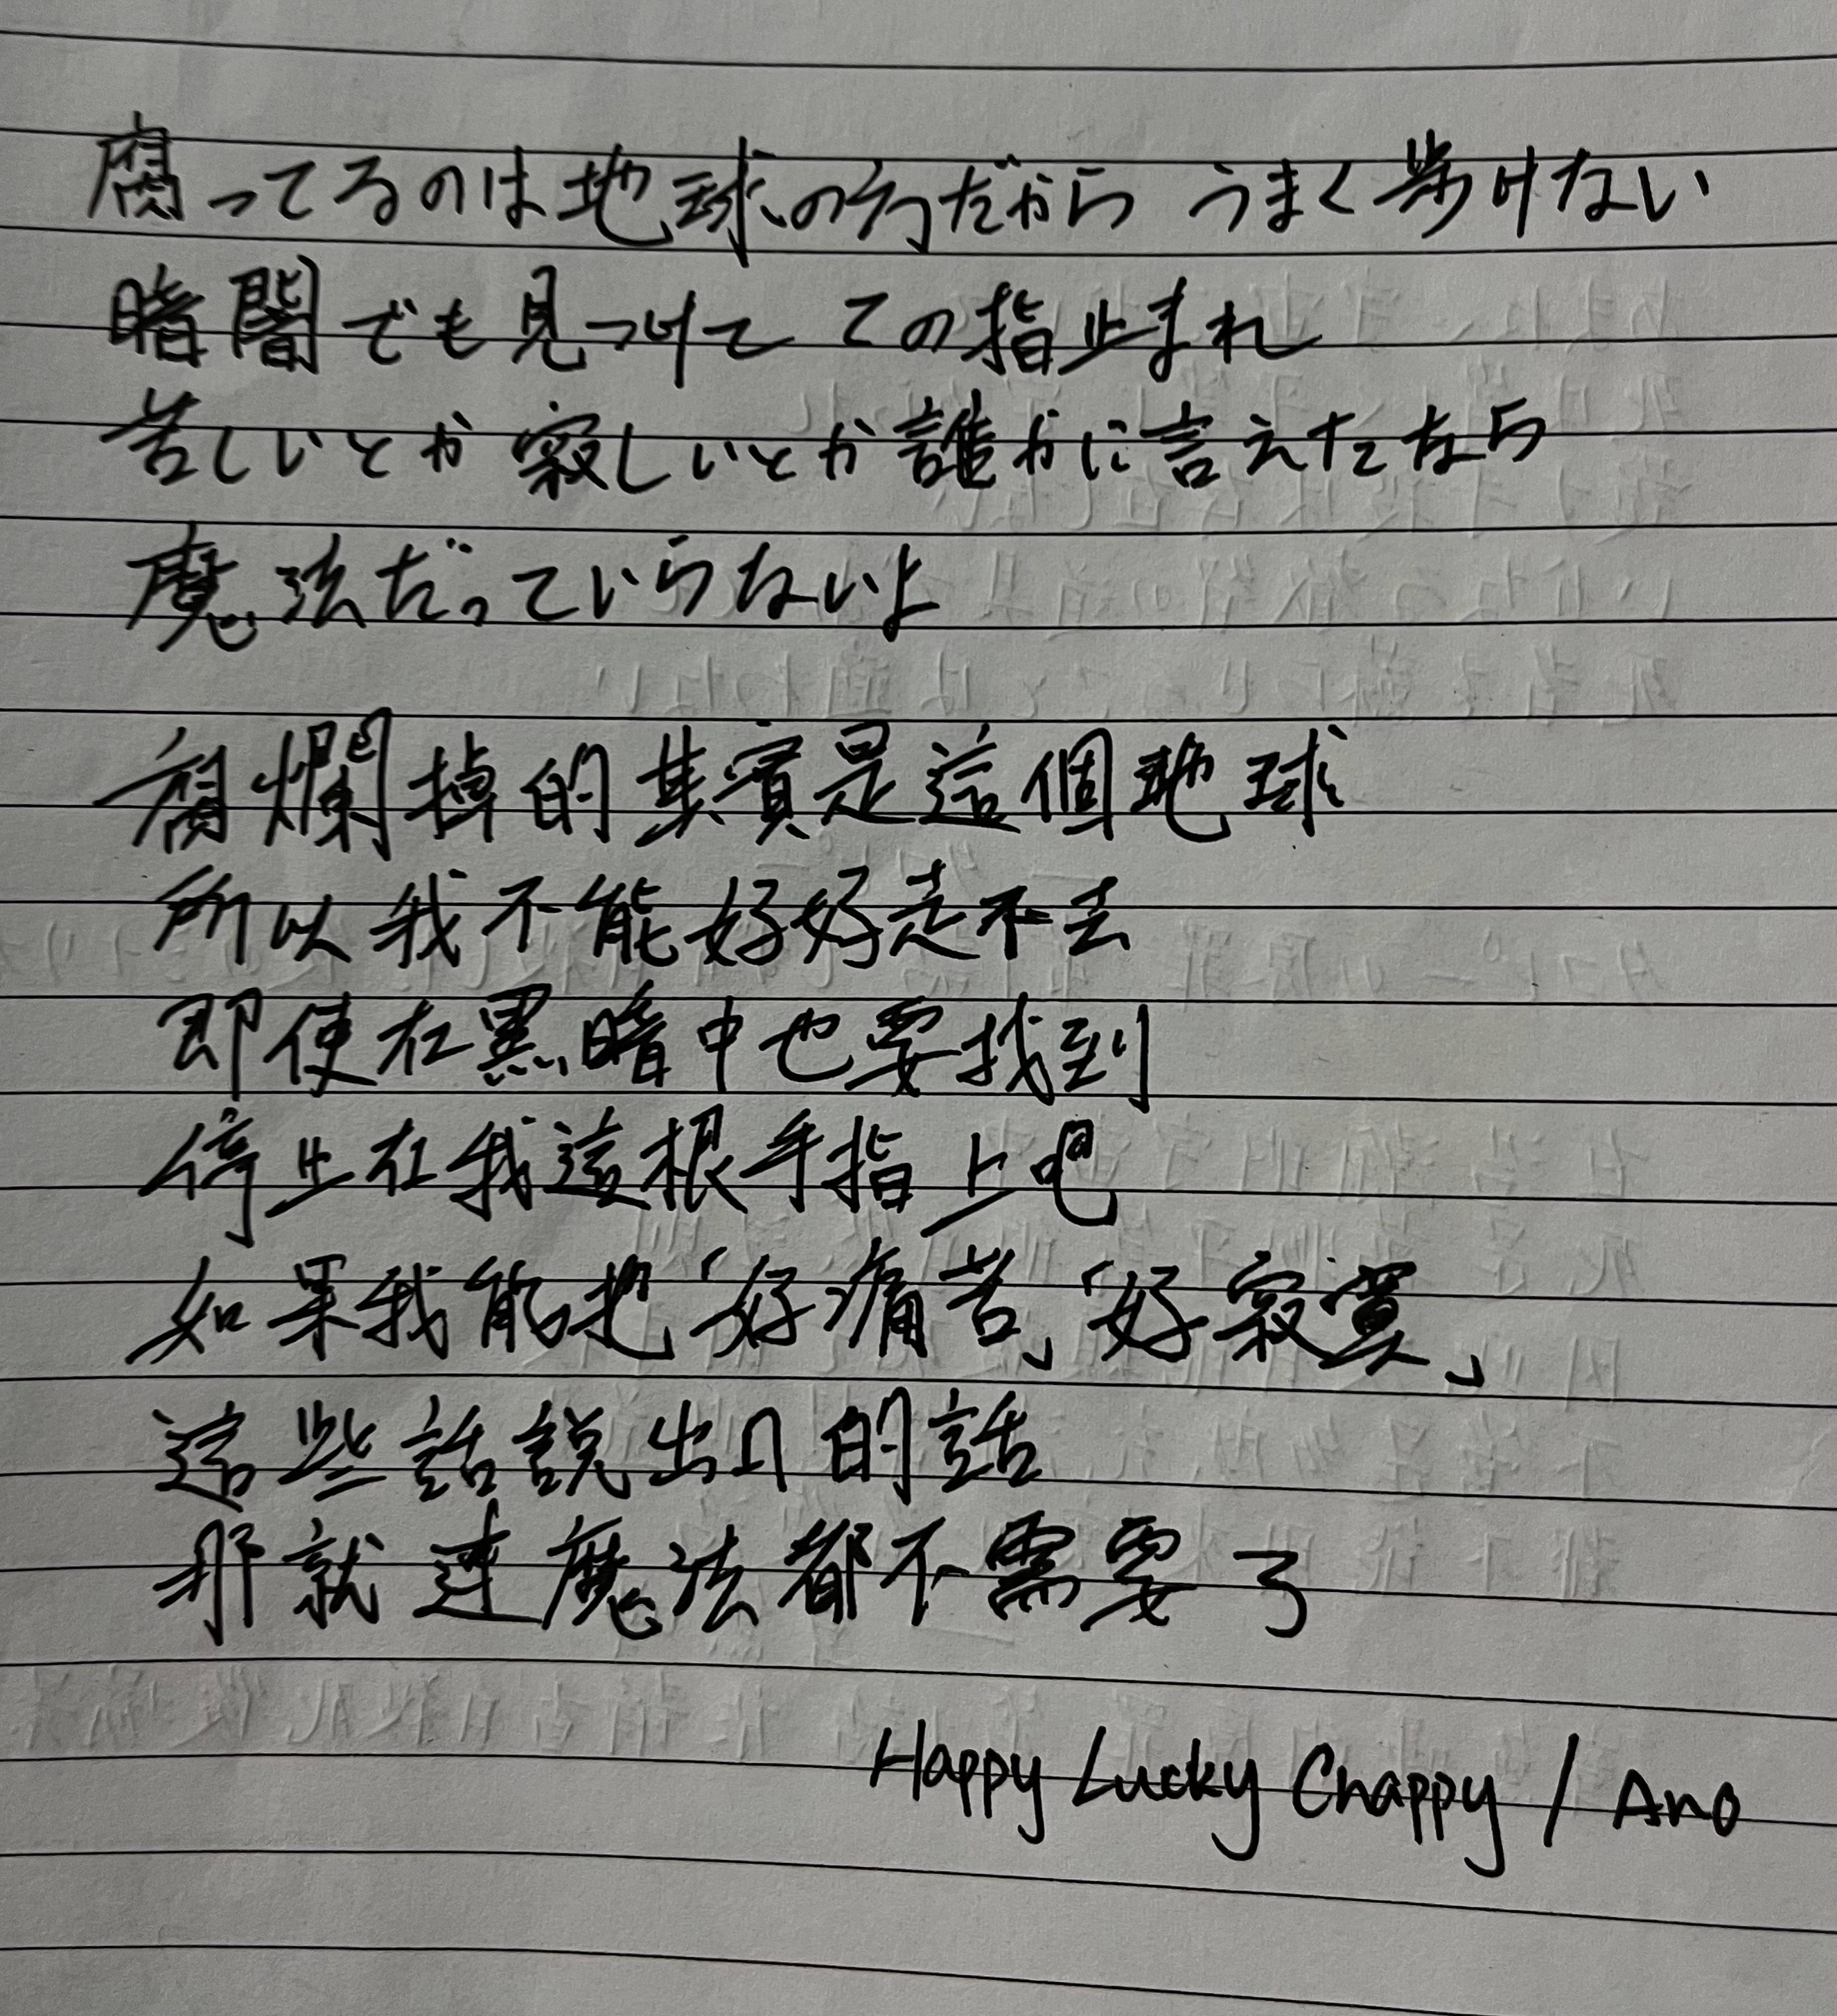 腐ってるのは地球の方だから うまく歩けない
暗闇でも見つけて この指止まれ
苦しいとか寂しいとか誰かに言えたなら
魔法だっていらないよ
腐爛掉的其實是這個地球
所以我不能好好走不去
即使在黑暗中也要找到
停止在我這根手指上吧
如果我能把「好痛苦」「好寂寞」
這些話說出口的話
那就連魔法都不需要了
Happy Lucky Chappy / Ano